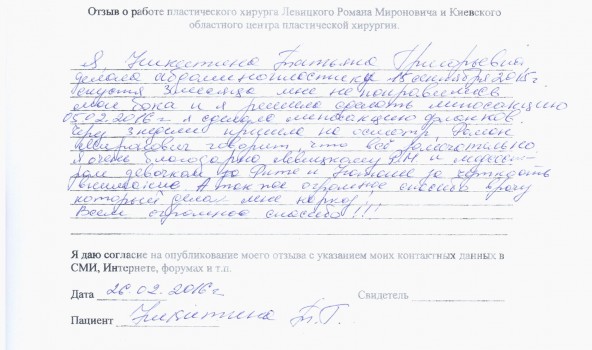 Отзыв о работе пластического хирурга Леницкого Романа Мироновича и Киевского
областного центра пластической хирургии.
Я, Никитина Татьяна Григорьевна
делала абдоминопластику 15 сентября 2015 г.
спустя 3 месяца мне не понравились
мои бока и я решила сделать липосакцию
05.02.2016 г. я сделала липосакцию фланков.
через 3 недели пришла на осмотр. Роман
Миронович говорит, что всё замечательно
Я очень благодарна Леницкому Р.М и медсёст-
рам девочкам за
внимание. А также огромное спасибо врачу
который делал мне наркоз.
Всем огромное спасибо!!!
Я даю согласие на опубликование моего отзыва с указанием моих контактных данных в
СМИ, Интернете, форумах и т.п.
Дата 26.02.2016 г. Свидетель
Пациент Никитина Т.Г.